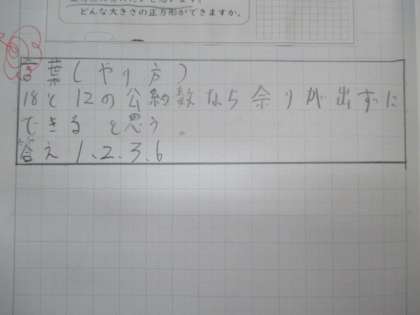 どんな大きさの正方形ができますか。
言葉(やり方)
18と12の公約数なら余りが出ずに
できると思う。
答え 1、2、3、6